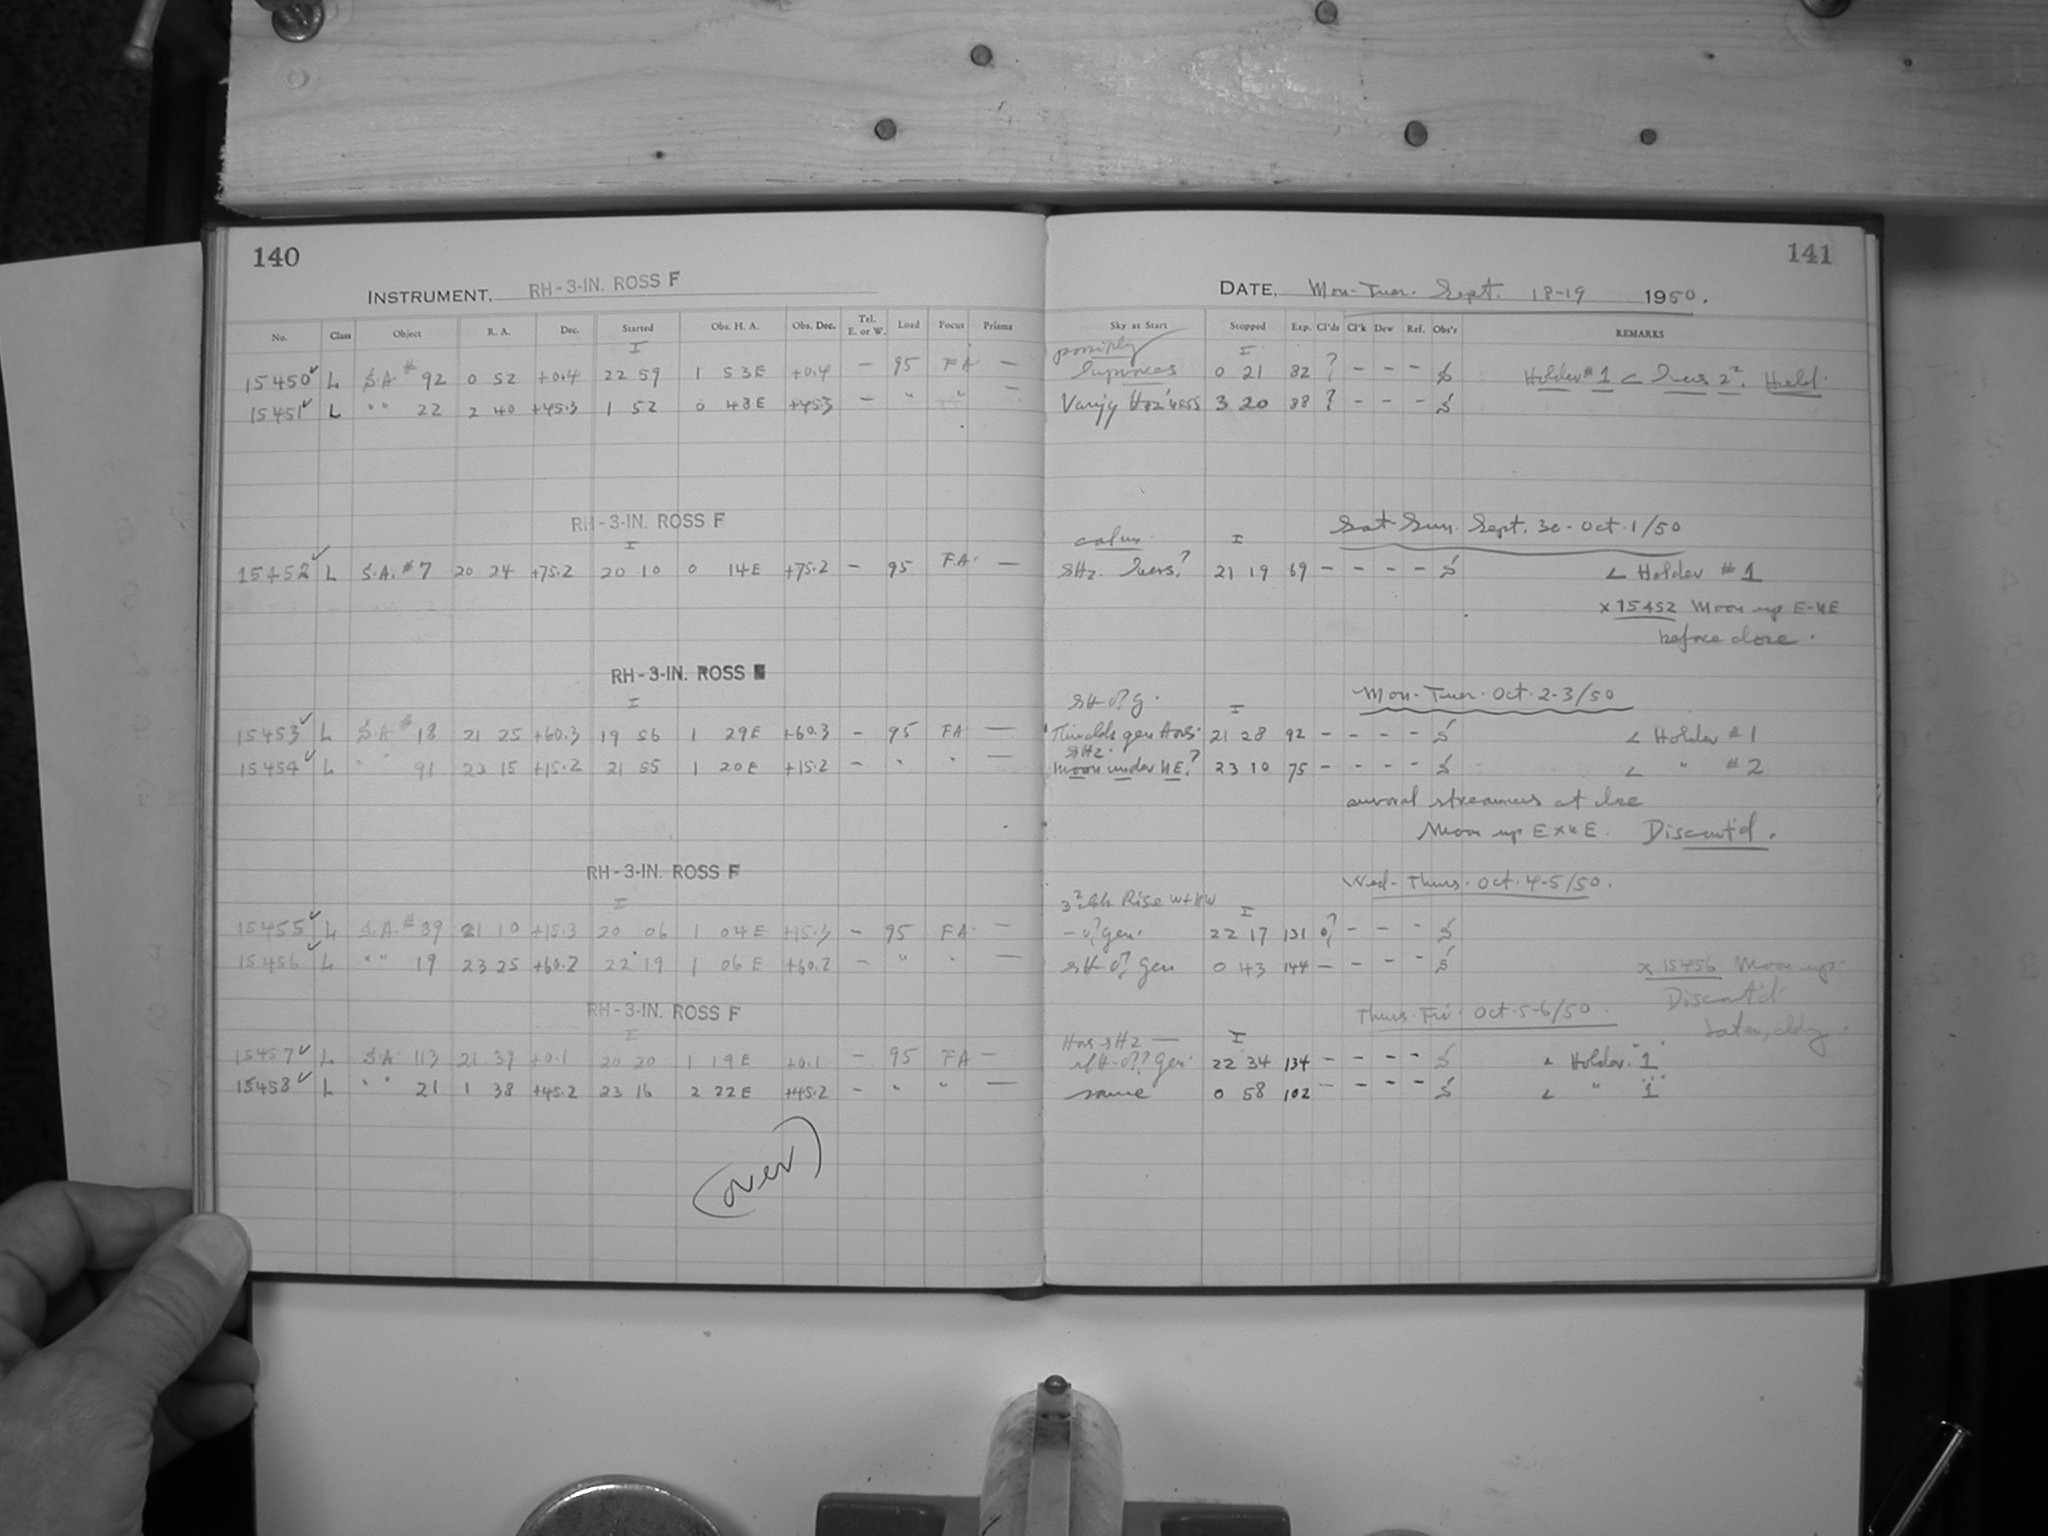 140
141
INSTRUMENT, RH-3-IN. ROSS F
DATE, Mon-Tues. Sept. 18-19 1950.
No. Class Object R. A. Dec. Started Obs. H. A. Obs. Dec. Tel. E. or W. Load Focus Prisms Sky at Start Stopped Exp. Cl'ds Cl'k Dew Ref. Obs'r REMARKS
I possibly I
15450 ✓ L S.A # 92 0 52 +0.4 22 59 1 53E +0.4 - 95 FA - 0 21 82 ? - - - S Holder #1
15451 ✓ L " " 22 2 40 +45.3 1 52 0 48E +45.3 - " " - 3 20 88 ? - - - S
RH-3-IN. ROSS F
Sat-Sun. Sept. 30-Oct. 1/50
I I
15452 ✓ L S.A. #7 20 24 +75.2 20 10 0 14E +75.2 - 95 FA. - 21 19 69 - - - - S < Holder #1
x 15452 Moon up E-NE
before close.
RH-3-IN. ROSS
Mon-Tues. Oct. 2-3/50
I I
15453 ✓ L S.A # 18 21 25 +60.3 19 56 1 29E +60.3 - 95 FA - 21 28 92 - - - - S < Holder #1
15454 ✓ L " " 91 23 15 +15.2 21 55 1 20E +15.2 - " " - Moon under NE? 23 10 75 - - - - S < " #2
auroral streamers at
Moon up ExNE. Discont'd.
RH-3-IN. ROSS F
Wed-Thurs. Oct. 4-5/50.
I Rise W+NW I
15455 ✓ L S.A. #39 21 10 +15.3 20 06 1 04E +15.3 - 95 FA. - gen. 22 17 131 ? - - - S
15456 ✓ L " " 19 23 25 +60.2 22 19 1 06E +60.2 - " " - gen 0 43 144 - - - - S x 15456 Moon up.
Discont'd
RH-3-IN. ROSS F
Thurs-Fri. Oct. 5-6/50.
Later, cldy.
I I
15457 ✓ L S.A 113 21 39 +0.1 20 20 1 19E +0.1 - 95 FA - gen. 22 34 134 - - - - S < Holder "1"
15458 ✓ L " " 21 1 38 +45.2 23 16 2 22E +45.2 - " " - same 0 58 102 - - - - S < " "1"
(over)